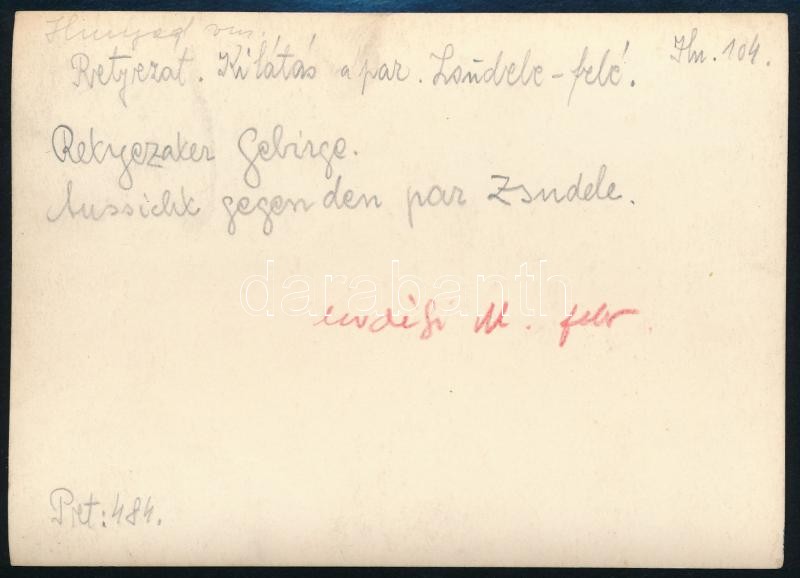 Hunyad vm.
Retyezat. Kilátás a par. Zsudele-felé. Hu. 104.
Retyezater Gebirge.
Aussicht gegen den par Zsudele.
darabanth
Erdélyi M. felv.
Pret: 484.